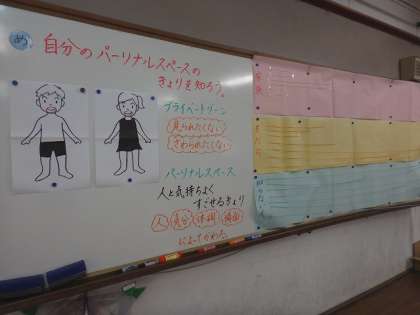 め
自分のパーソナルスペースの
きょりを知ろう。
プライベートゾーン
見られたくない
さわられたくない
パーソナルスペース
人と気持ちよく
すごせるきょり
人 気分 体調 場面
によってかわる。
家族
知らない人